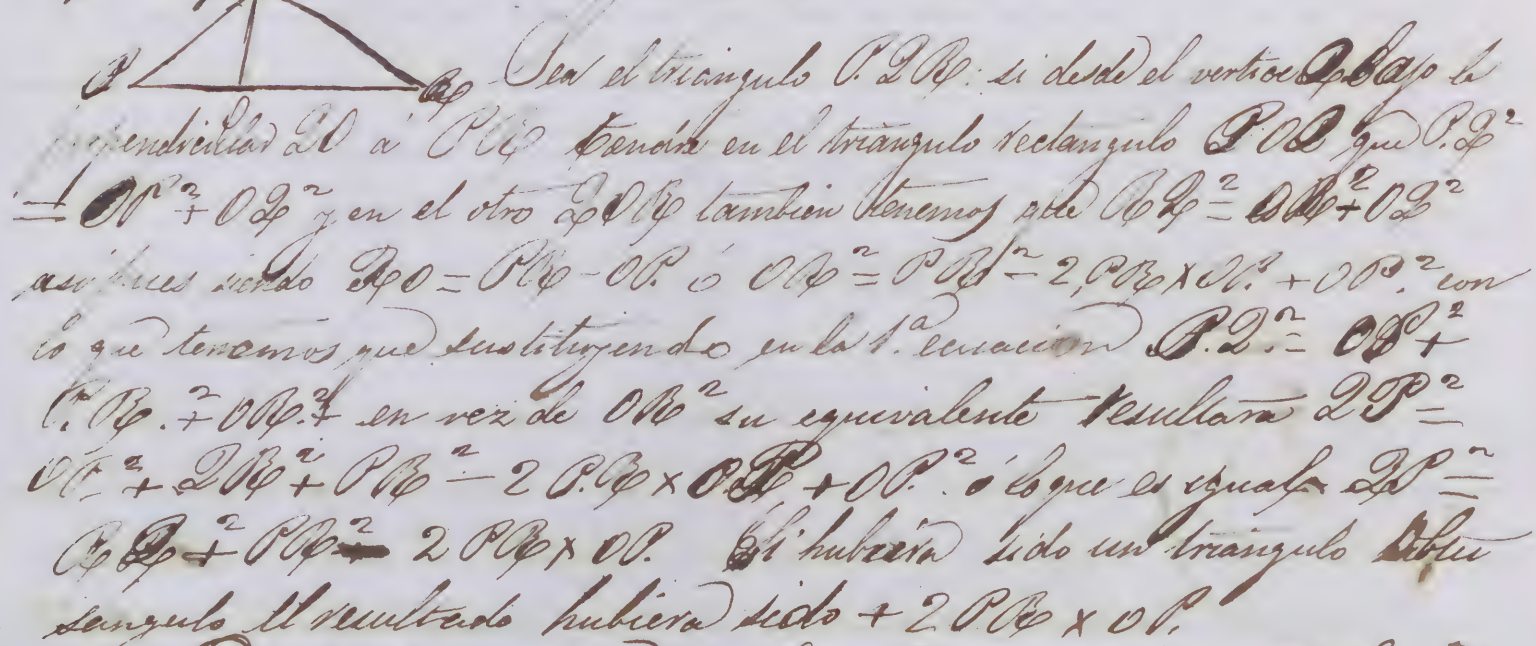 P R Sea el triangulo P.QR: si desde el vertice Q bajo la
pendicular QO á PR tendré en el triangulo rectangulo POQ que P.Q²
= OP² + OQ² y en el otro QOR tambien tenemos que RQ² = OR² + OQ²
asi pues siendo RO = PR - OP. ó OR² = PR² - 2,PR × OP. + OP.² con
lo que tenemos que sustituyendo en la 1.ª ecuacion P.Q.² = OP² +
P.R.² + OR.² + en vez de OR² su equivalente resultara QP² =
OP² + QR² + PR² - 2 P.R × OP, + OP.² ó lo que es igual QP² =
RQ² + PR² - 2 PR × OP. Si hubiera sido un triangulo obtu
sangulo el resultado hubiera sido + 2 PR × OP.